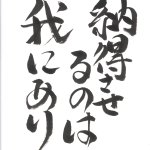 納得させ
るのは
我にあり